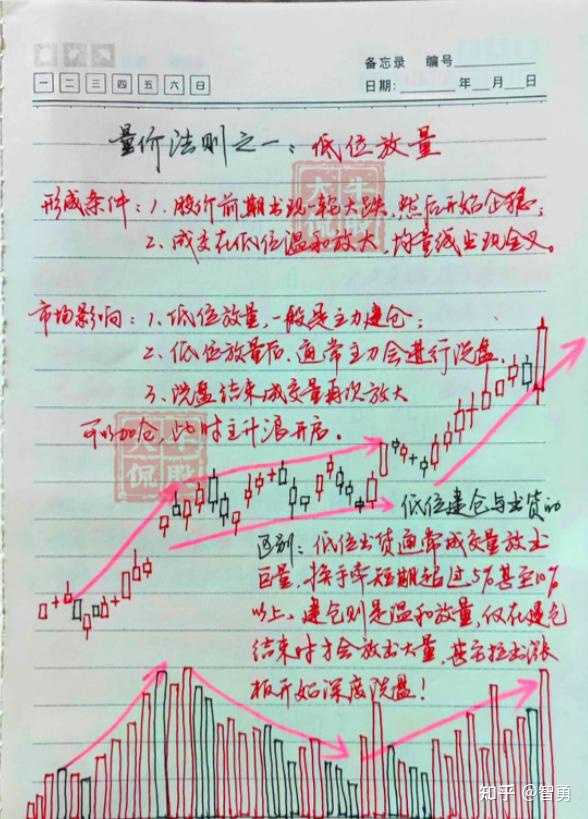 备忘录 编号
一 二 三 四 五 六 日
日期: 年 月 日
量价法则之一:低位放量
形成条件:1. 股价前期出现一轮大跌,然后开始企稳;
2. 成交在低位温和放大,均量线出现金叉。
市场影响:1. 低位放量,一般是主力建仓;
2. 低位放量后,通常主力会进行洗盘
3. 洗盘结束成交量再次放大
可以加仓,此时主升浪开启。
低位建仓与出货的
区别:低位出货通常成交量放出
巨量,换手率短期超过5%甚至10%
以上,建仓则是温和放量,仅在建仓
结束时才会放出大量,甚至拉出涨
板开始深度洗盘!
大牛
侃股
大牛
侃股
知乎 @智勇